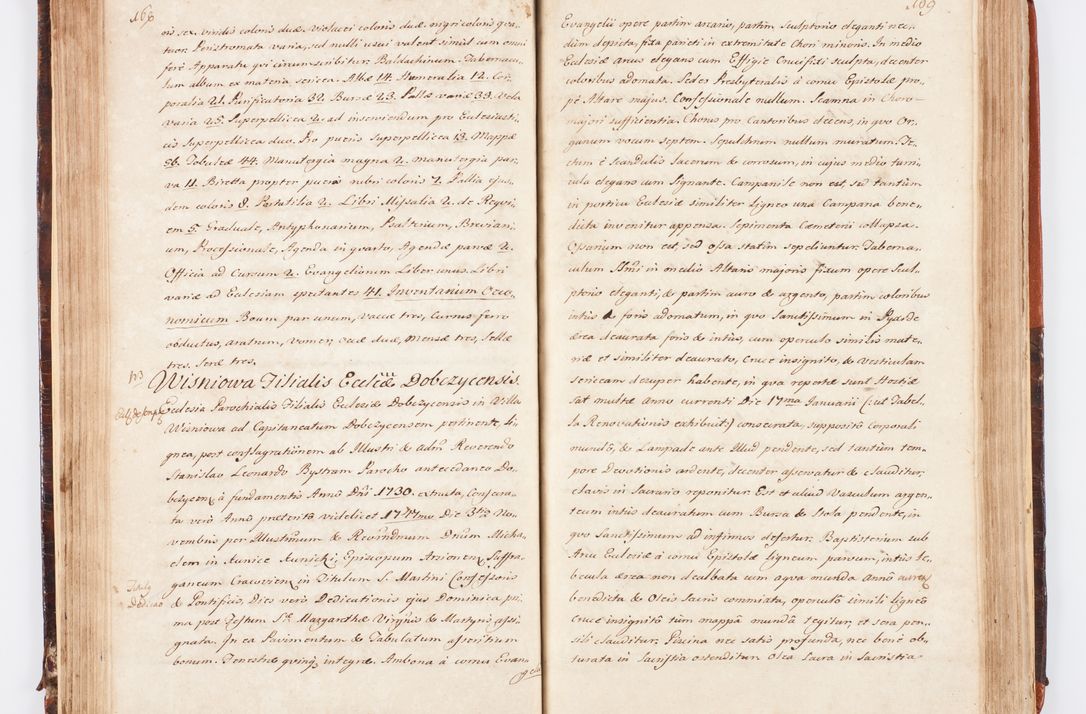 168
ris sex, viridis coloris duæ, violacei coloris duæ, nigri coloris qua-
tuor. Peristromata varia, sed nulli usui valent simul cum omni
ferè Apparatu qui circumscribitur. Baldachinum. Tabernacu-
lum album ex materia sericea. Albæ 14. Humeralia 12. Cor-
poralia 21. Purificatoria 32. Bursæ 23. Pallæ variæ 39. Vela
varia 25. Superpellicea 2. ad inserviendum pro Ecclesiasti-
cis Superpellicea duo. Pro pueris Superpellicea 13. Mappæ
56. Tobaleæ 44. Manutergia magna 2. manutergia par-
va 11. Biretta propter pueros rubri coloris 7. Pallia ejus-
dem coloris 8. Portatilia 2. Libri Missalia 2. de Requi-
em 5. Graduale, Antyphonarium, Psalterium, Breviari-
um, Processionale, Agenda in quarto, Agendæ parvæ 2.
Officia ad Cursum 2. Evangeliorum Liber unus. Libri
variæ ad Ecclesiam spectantes 41. Inventarium Oeco-
nomicum Boum par unum, vaccæ tres, Currus ferro
obductus, aratrum, vomer, oves duæ, mensæ tres, Sellæ
tres, Seræ tres.
Wisniowa Filialis Eccleiæ Dobczycensis.
Ecclesia Parochialis Filialis Ecclesiæ Dobczycensis in Villa
Wisniowa ad Capitaneatum Dobczycensem pertinente, Li-
gnea, post consagrationem ab Illustri & adm Reverendo
Stanislao Leonardo Bystram Parocho antecedaneo Do-
bczycen à fundamentis Anno Dni 1730. extructa, Consecra-
ta verò Annô præteritô videlicet 1747mo Die 3tia No-
vembris per Illustrimum & Revrindmum Dnum Micha-
elem in Kunice Kunicki, Episcopum Arsionen, Suffra-
ganeum Cracovien in Titulum S. Martini Confessoris
& Pontificis, Dies verò Dedicationis ejus Dominica pri-
ma post Festum Stæ Margarethæ Virginis & Martyris assi-
gnata. In ea Pavimentum & Tabulatum asseritium
bonum. Fenestræ quinq integræ. Ambona à cornu Evan-
gelii
169
Evangelii opere partim arcario, partim Sculptorio eleganti nec-
dum depicta, fixa parieti in extremitate Chori minoris. In medio
Ecclesiæ arcus elegans cum Effigie Crucifixi sculpta, decenter
coloribus adornata. Sedes Presbyteralis à cornu Epistolæ pro-
pè Altare majus. Confessionale nullum. Scamna in Choro
majori sufficientia. Chorus pro Cantoribus decens, in quo Or-
ganum vocum septem. Sepulchrum nullum muratum. Te-
ctum è Scandulis lacerum & corrosum, in cujus medio turri-
cula elegans cum Signante. Campanile non est, sed tantùm
in porticu Ecclesiæ similiter Lignea una Campana bene-
dicta invenitur appensa. Sepimenta Cæmeterii collapsa.
Ossarium non est, sed ossa statim sepeliuntur. Taberna-
culum SSmi in medio Altaris majoris fixum opere Scul-
ptorio eleganti, & partim auro & argento, partim coloribus
intùs & foris adornatum, in quo Sanctissimum in Pyxide
ærea deaurata foris & intùs, cum operculo similis mate-
riæ et similiter deaurato, Cruce insignito, & Vesticulam
sericeam desuper habente, in qua repertæ sunt Hostiæ
sat multæ Anno currenti Die 17ma Januarii (: ut Tabel-
la Renovationis exhibuit :) consecratæ, suppositô Corporali
mundô, & Lampade ante Illud pendente, sed tantùm tem-
pore Devotionis ardente, decenter asservatur & clauditur,
clavis in Sacrario reponitur. Est et aliud Vasculum argen-
teum intùs deauratum cum Bursa & Stola pendente, in
quo Sanctissimum ad infirmos defertur. Baptisterium sub
Arcu Ecclesiæ à cornu Epistolæ ligneum parvum, intùs le-
becula ærea non dealbata cum aqva munda Annô currenti
benedicta & Oleis Sacris commixta, operculô simili ligneô
Cruce insignitô tum mappâ mundâ tegitur, et sera pen-
sili clauditur. Piscina nec satis profunda, nec benè ob-
turata in Sacristia ostenditur. Olea Sacra in Sacristia